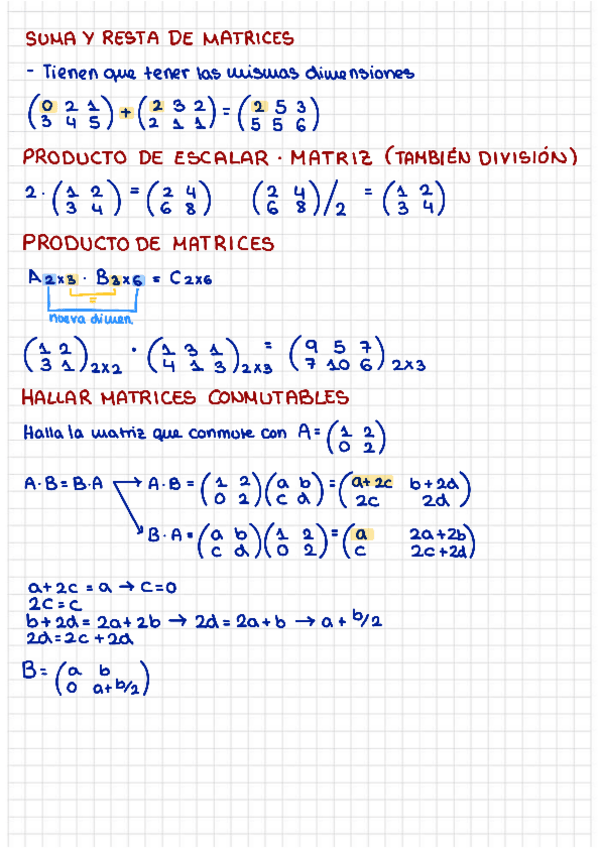 SUMA Y RESTA DE MATRICES
- Tienen que tener las mismas dimensiones
(0 2 1 / 3 4 5) + (2 3 2 / 2 1 1) = (2 5 3 / 5 5 6)
PRODUCTO DE ESCALAR · MATRIZ (TAMBIÉN DIVISIÓN)
2 · (1 2 / 3 4) = (2 4 / 6 8) (2 4 / 6 8)/2 = (1 2 / 3 4)
PRODUCTO DE MATRICES
A 2x3 · B 3x6 = C 2x6
=
nueva dimen.
(1 2 / 3 1) 2x2 · (1 3 1 / 4 1 3) 2x3 = (9 5 7 / 7 10 6) 2x3
HALLAR MATRICES CONMUTABLES
Halla la matriz que conmute con A = (1 2 / 0 2)
A·B = B·A → A·B = (1 2 / 0 2)(a b / c d) = (a+2c b+2d / 2c 2d)
B·A = (a b / c d)(1 2 / 0 2) = (a 2a+2b / c 2c+2d)
a+2c = a → c=0
2c = c
b+2d = 2a+2b → 2d = 2a+b → a + b/2
2d = 2c+2d
B = (a b / 0 a+b/2)